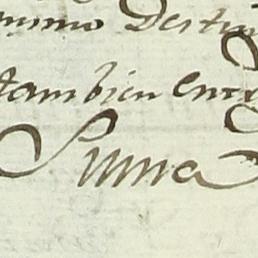 mismo Destin
tambien en
Suma